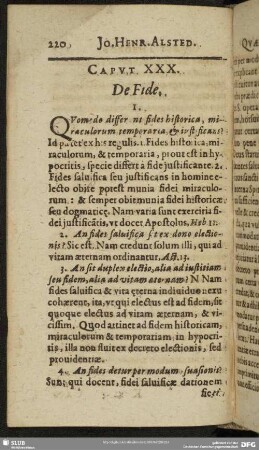 220. JO. HENR. ALSTED.
CAPVT XXX.
De Fide.
I.
QVomodo differunt fides historica, mi-
raculorum temporaria & iustificans?
Id patet ex his regulis. 1. Fides historica, mi-
raculorum, & temporaria, prout est in hy-
pocritis, specie differt à fide justificante. 2.
Fides salvifica seu justificans in homine e-
lecto obire potest munia fidei miraculo-
rum: & semper obit munia fidei historicæ
seu dogmaticę. Nam varia sunt exercitia fi-
dei justificātis, vt docet Apostolus, Heb. 11.
2. An fides salvifica sit ex dono electio-
nis? Sic est. Nam credunt solum illi, qui ad
vitam æternam ordinantur. Act. 13.
3. An sit duplex electio, alia ad iustitiam
seu fidem, alia ad vitam æternam? N Nam
fides salvifica & vita ęterna individuo nexu
cohærent, ita, vt qui electus est ad fidem, sit
quoque electus ad vitam æternam, & vi-
cissim. Quod attinet ad fidem historicam,
miraculorum & temporariam in hypocri-
tis, illa non fluit ex decreto electionis, sed
providentiæ.
4. An fides detur per modum suasionis?
Sunt qui docent, fidei salvificæ dationem
fieri
SLUB
DFG